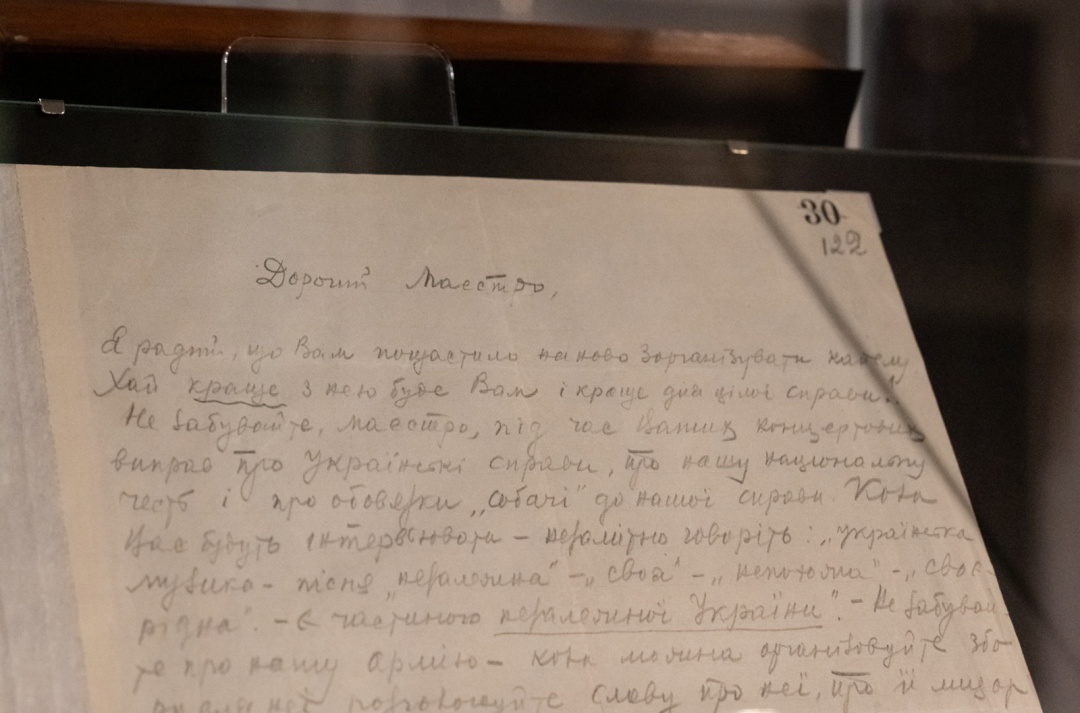 30
122
Дорогий Маестро,
Я радий, що Вам пощастило наново зорганізувати капелу
Хай краще з нею буде Вам і краще для цілої справи!
Не забувайте, Маестро, під час Ваших концертових
виправ про Українські справи, про нашу національну
честь і про обовязки „собачі" до нашої справи Коли
Вас будуть інтервьювати – говоріть: „українська
музика – пісня „незалежна" – „своя" – – „своє-
рідна". – Є частиною незалежної України". – Не забувай-
те про нашу армію – коли можна організовуйте збо-
славу про неї, про її